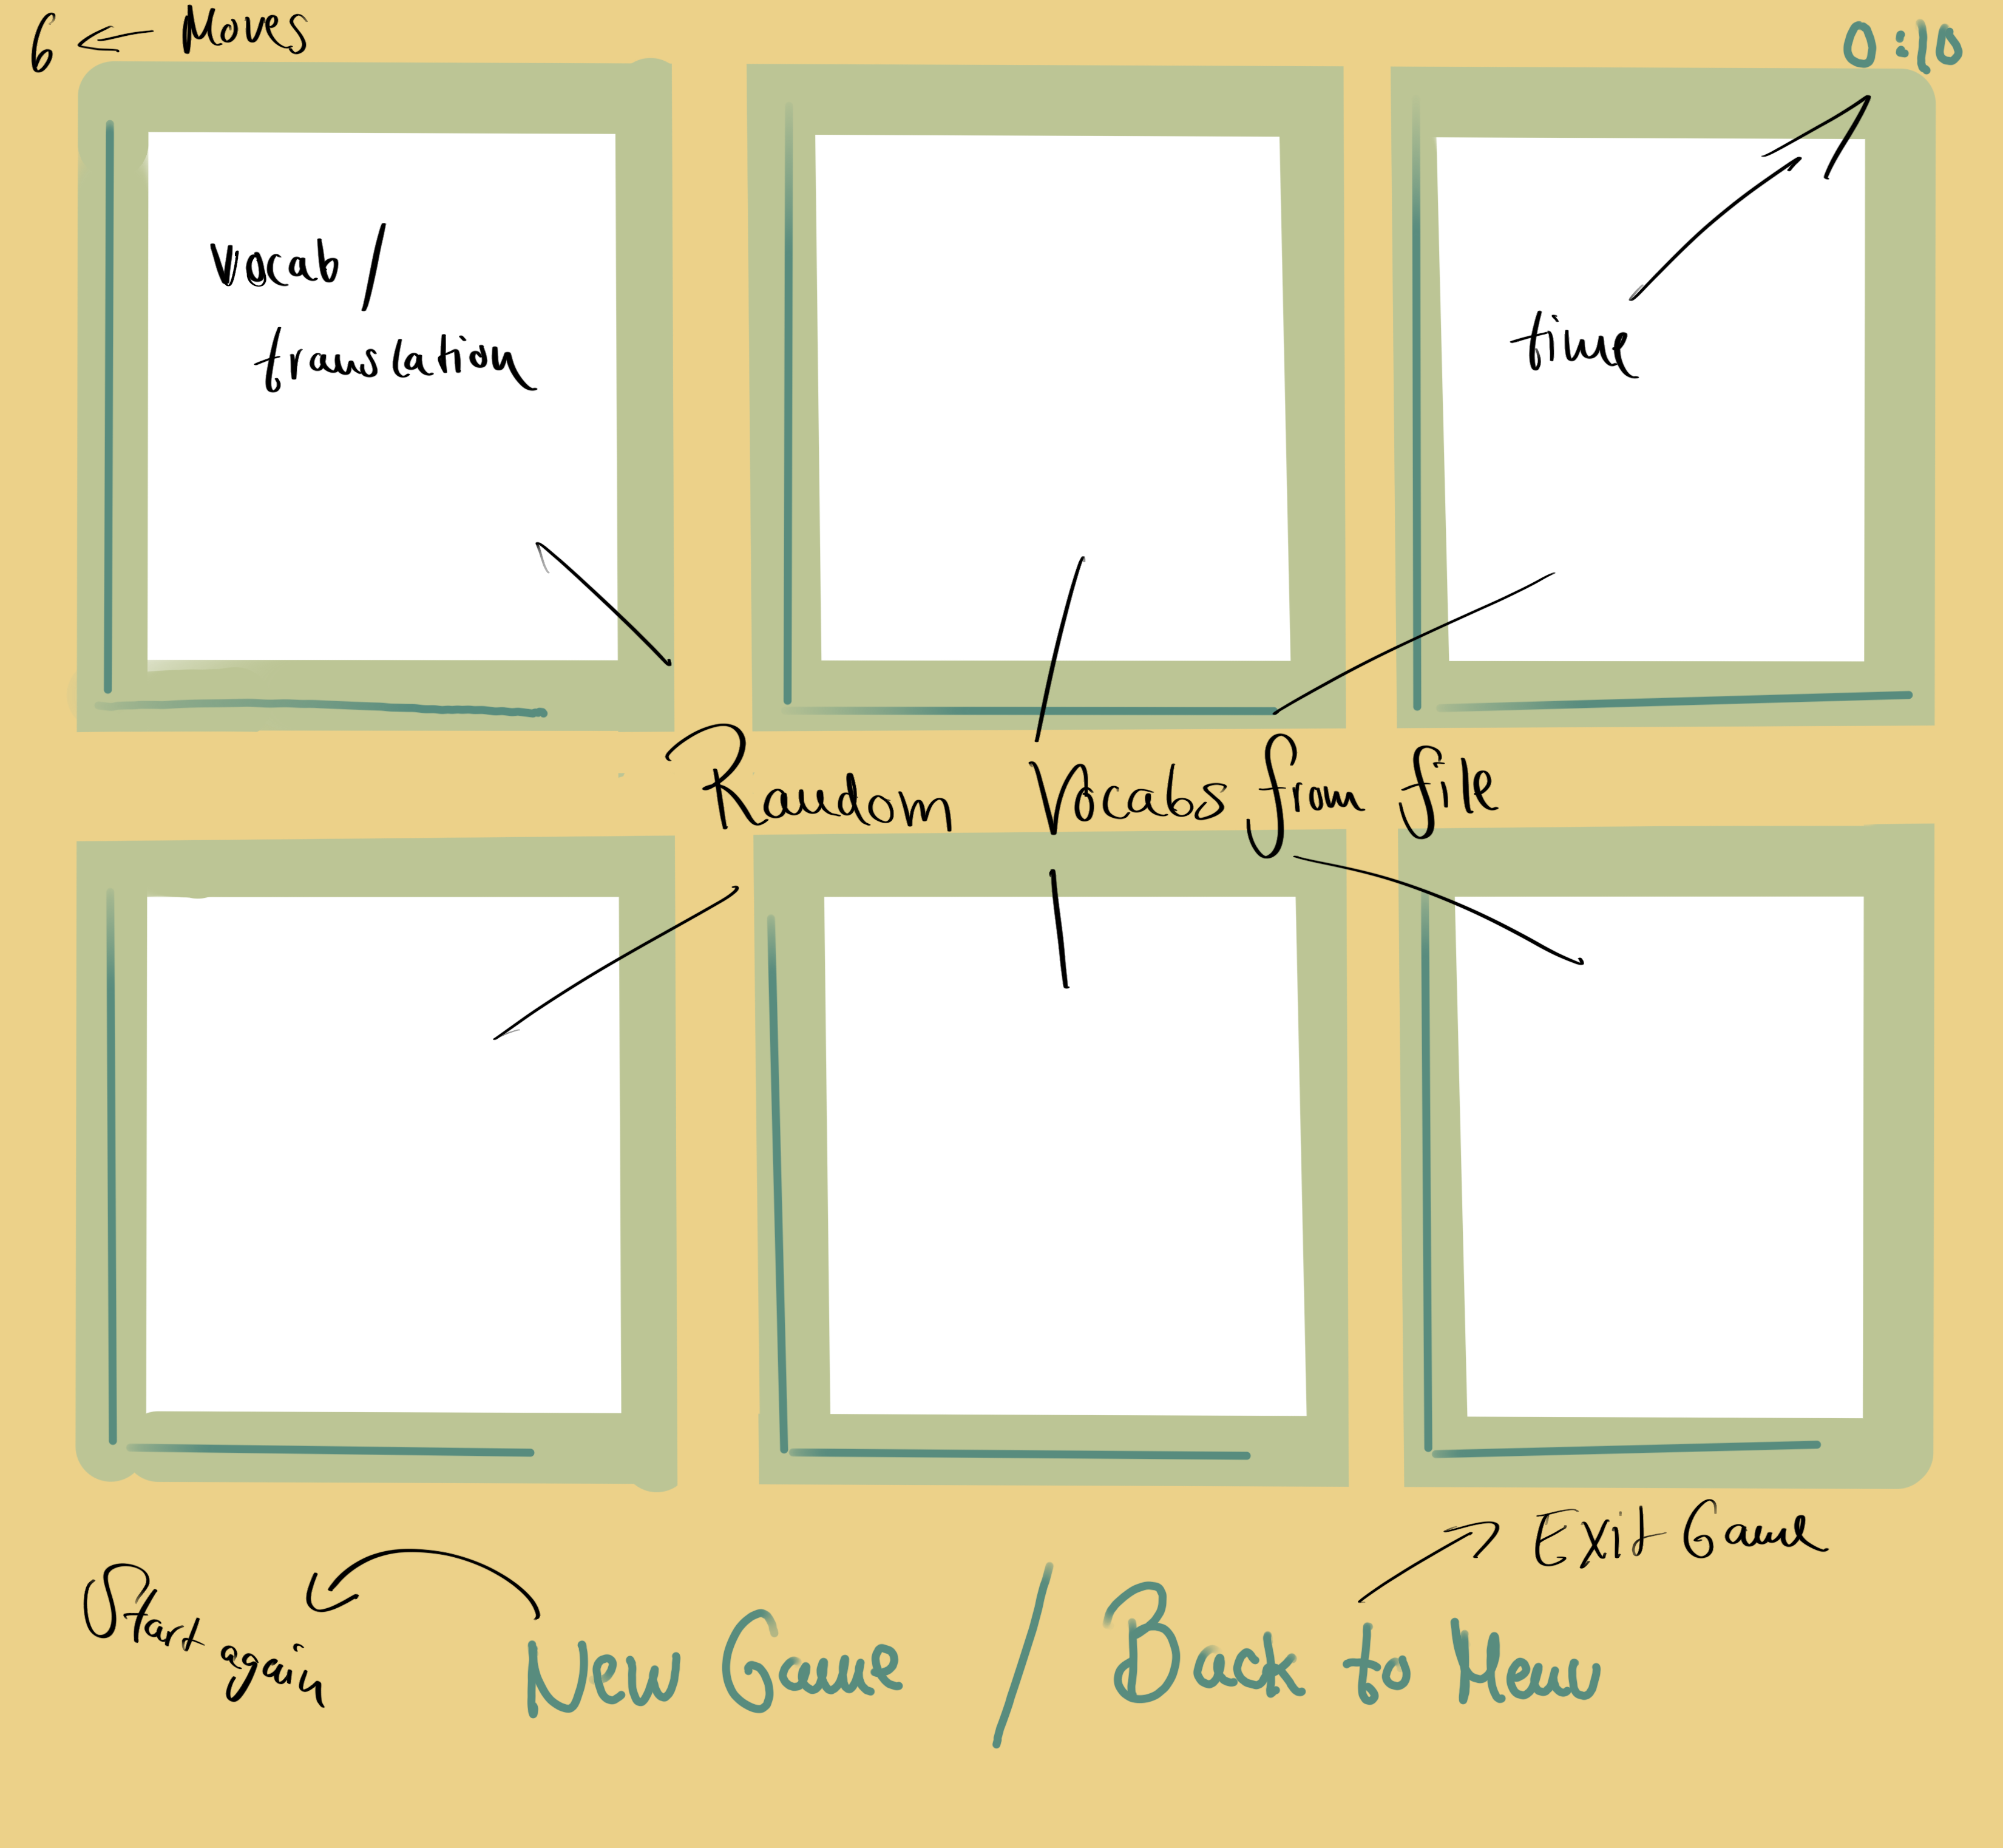 6 ← Moves
0:10
Vocab/
translation
time
Random Vocabs from file
Exit Game
Start again
New Game / Back to Menu